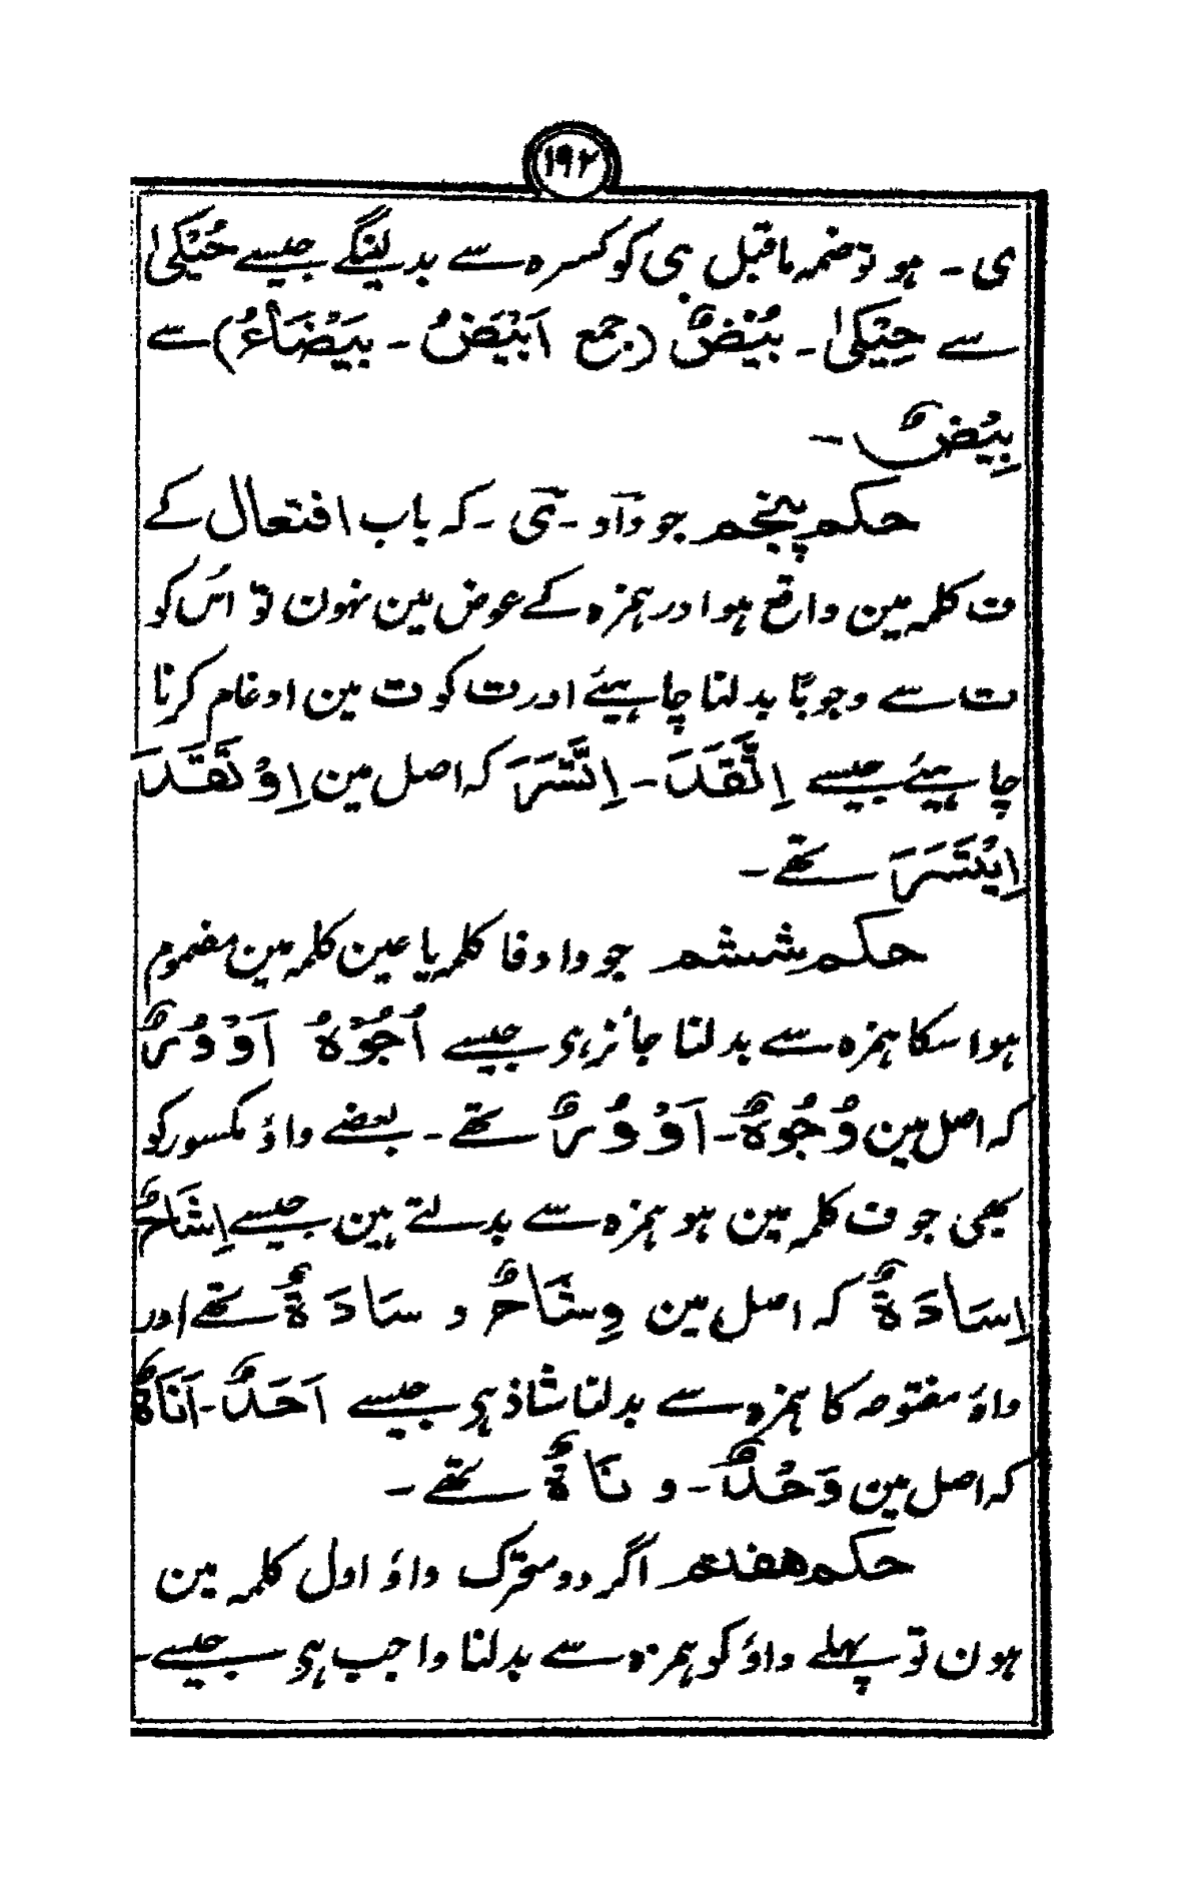 ۱۹۲
ی ۔ ہو تو ضمہ ماقبل ہی کو کسرہ سے بدلینگے جیسے حُیْکیٰ
سے حِیْکیٰ ۔ بُیْضٌ (جمع اَبْیَضُ ۔ بَیْضَاءُ) سے
بِیْضٌ ۔
حکم پنجم جو واو ۔ ی ۔ کہ باب افتعال کے
ف کلمہ مین واقع ہوا در ہمزہ کے عوض مین نہون تو اُس کو
ت سے وجوبًا بدلنا چاہیئے اور ت کو ت مین ادغام کرنا
چاہیئے جیسے اِتَّقَدَ ۔ اِتَّسَرَ کہ اصل مین اِوْتَقَدَ
اِیْتَسَرَ تھے ۔
حکم ششم جو واو فا کلمہ یا عین کلمہ مین مضموم
ہوا سکا ہمزہ سے بدلنا جائز ہی جیسے اُجُوْہٌ اَوْوُرٌ
کہ اصل مین وُجُوہٌ ۔ اَوْوُرٌ تھے ۔ بعضے واؤ مکسور کو
بھی جو ف کلمہ مین ہو ہمزہ سے بدلتے ہین جیسے اِشَاحٌ
اِسَادَۃٌ کہ اصل مین وِشَاحٌ و سَادَۃٌ تھے اور
واؤ مفتوحہ کا ہمزہ سے بدلنا شاذ ہی جیسے اَحَدٌ ۔ اَنَاۃٌ
کہ اصل مین وَحَدٌ ۔ و نَاۃٌ تھے ۔
حکم ہفتم اگر دو متحرک واؤ اول کلمہ مین
ہون تو پہلے واؤ کو ہمزہ سے بدلنا واجب ہی جیسے ۔